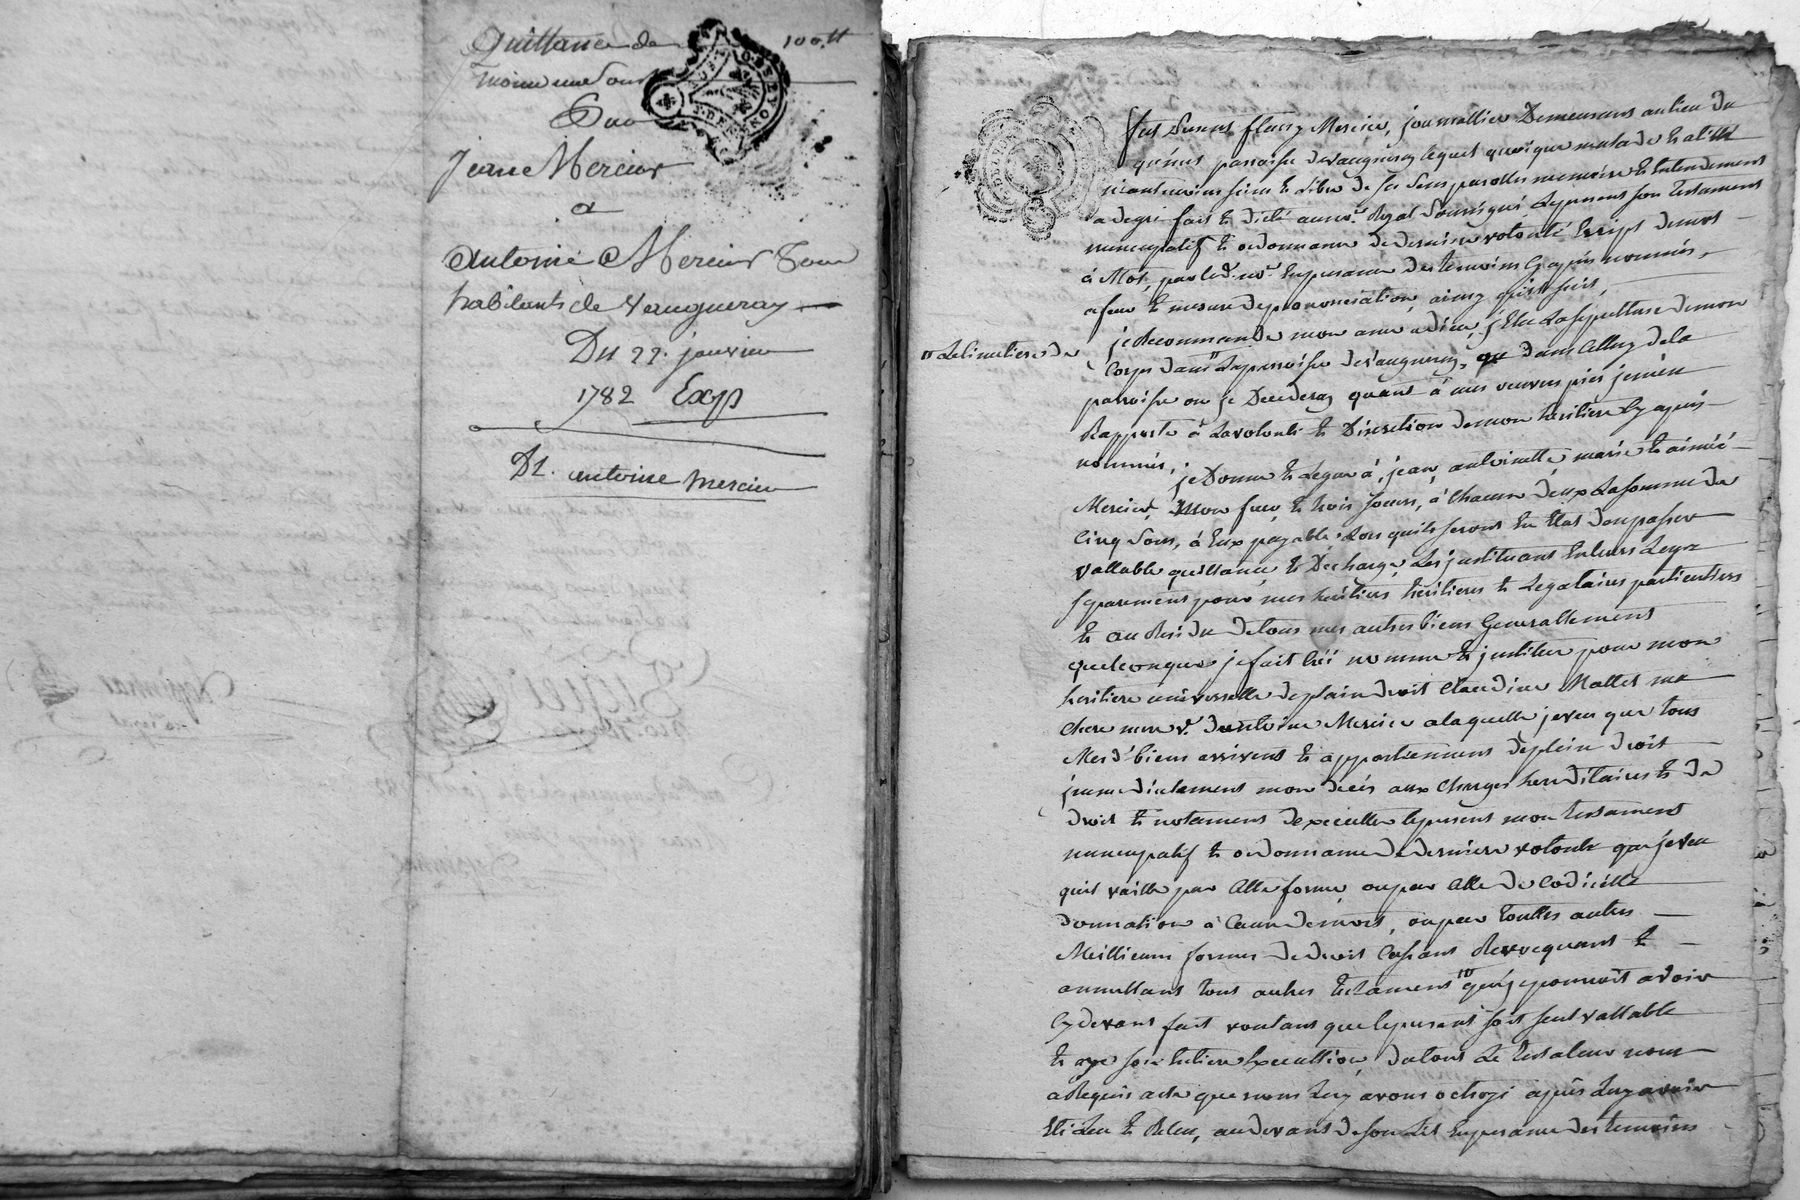 Quittance de 100 tt
moins une sous
Par
Jeane Mercier
a
Antoine Mercier Tous
habitants de Vaugneray
Du 22. janvier
1782 Exp
Dt. antoine mercier
fut present fleury Mercier, journallier Demeurant au lieu du
paroisse de vaugneray lequel quoique malade et alitté
neantmoins sain et libre de ses sens parolles memoire et Entendement
a degré fait et dicté au no.re Royal soussigné Le present son testament
nuncupatif et ordonnance de derniere volonté Escript de mot
à Mot, par led. no.re En presence des temoins cy apres nommés,
a fur et mesure de prononciation, ainsy qu'il suit,
je Recommande mon ame a dieu, j'Elis La sepulture de mon
" Le cimetiere de
Corps dans " La paroisse de vaugneray, ou dans Celluy de la
paroisse ou je Decederay quant à mes oeuvres pies je m'en
Rapporte à La volonté et Discretion de mon heritiere cy apres
nommée, je Donne et Legue à, jean, antoinette marie et aimée
Mercier, Mon frere et trois soeurs, à Chacun d'eux La somme de
Cinq sous, à Eux payable Lors quils seront En Etat d'en passer
vallable quittance et Decharge, Les instituant En leurs Legs
separement pour mes heritiers, heritieres et Legataires particuliers
et au Residu de tous mes autres biens Generallement
quelconques je fait Créé nomme et institue pour mon
heritiere universelle de plain droit Claudine Mallet ma
Chere mere v.e d'antoine Mercier a laquelle je veu que tous
Mesd. biens arrivent et appartiennent de plein droit
immediatement mon décès aux Charges hereditaires et de
droit et notament d'executter le present mon testament
nuncupatif et ordonnance de derniere volonté que je veu
quil vaille par Cette forme, ou par Celle de Codicille
donnation à Cause de mort, ou par touttes autres
Meillieurs formes de droit Cassant Revoquant et
annullant tous autres testament " quej pourroit avoir
Cy devant fait voulant que le present soit seul vallable
et aye son Entiere Execution, dutout Le testateur nous
a Requis acte que nous Luy avons octroyé après Luy avoir
Eté Leu et Releu, au devant de son Lit En presence des temoins